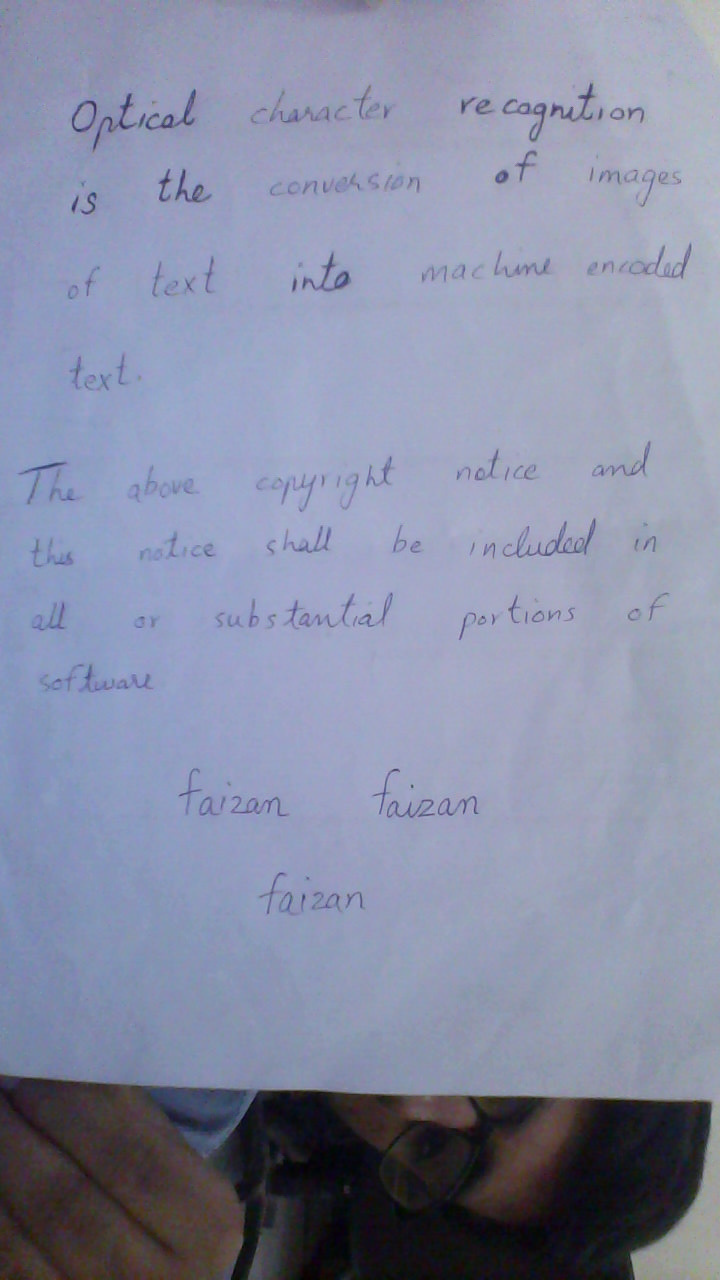 Optical character recognition
is the conversion of images
of text into machine encoded
text.
The above copyright notice and
this notice shall be included in
all or substantial portions of
software
faizan faizan
faizan